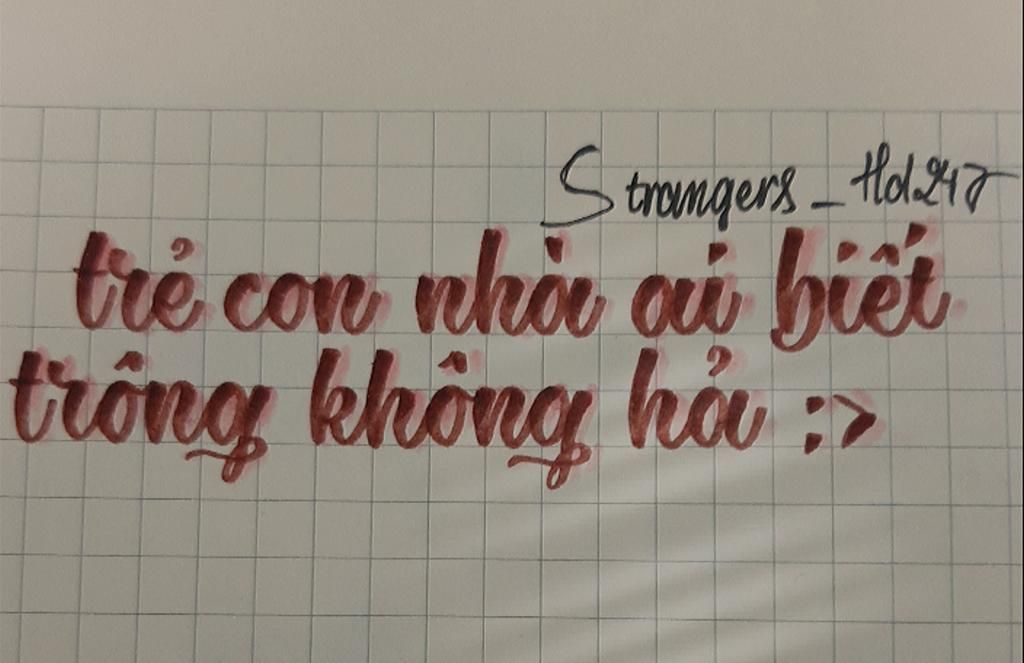 Strangers_Hd247
trẻ con nhà ai biết
trông không hả :>